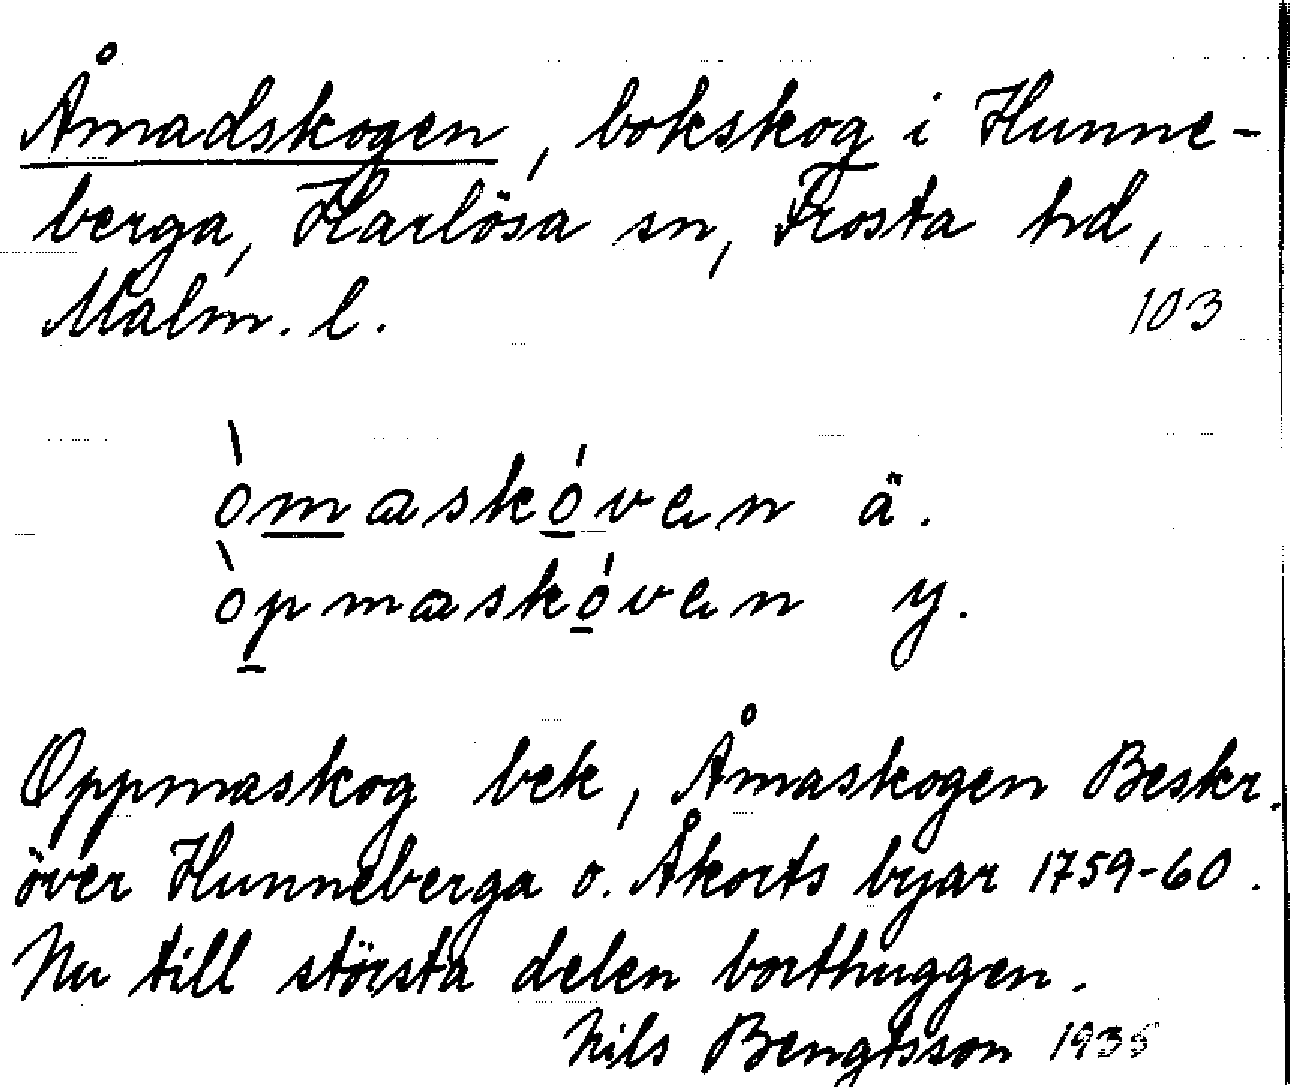 Åmadskogen, bokskog i Hunne-
berga, Harlösa sn, Frosta hd,
Malm. l. 103
òmaskóven ä.
òpmaskóven y.
Oppmaskog bek, Åmaskogen Beskr.
över Hunneberga o. Åkorts byar 1759-60.
Nu till största delen borthuggen.
Nils Bengtsson 1935